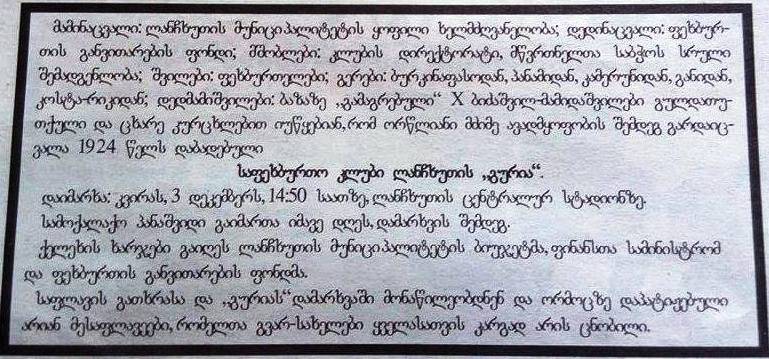 მამინაცვალი: ლანჩხუთის მუნიციპალიტეტის ყოფილი ხელმძღვანელობა; დედინაცვალი: ფეხბურ-
თის განვითარების ფონდი; მშობლები: კლუბის დირექტორატი, მწვრთნელთა საბჭოს სრული
შემადგენლობა; შვილები: ფეხბურთელები; გერები: ბურკინაფასოდან, პანამიდან, კამერუნიდან, განიდან,
კოსტა-რიკიდან; დედმამიშვილები: ბაზაზე „გამაგრებული“ X ბიძაშვილ-მამიდაშვილები გულდათუ-
თქული და ცხარე კურცხლებით იუწყებიან, რომ ორწლიანი მძიმე ავადმყოფობის შემდეგ გარდაიც-
ვალა 1924 წელს დაბადებული
საფეხბურთო კლუბი ლანჩხუთის „გურია“.
დაიმარხა: კვირას, 3 დეკემბერს, 14:50 საათზე, ლანჩხუთის ცენტრალურ სტადიონზე.
სამოქალაქო პანაშვიდი გაიმართა იმავე დღეს, დამარხვის შემდეგ.
ქელეხის ხარჯები გაიღეს ლანჩხუთის მუნიციპალიტეტის ბიუჯეტმა, ფინანსთა სამინისტრომ
და ფეხბურთის განვითარების ფონდმა.
საფლავის გათხრასა და „გურიას“ დამარხვაში მონაწილეობდნენ და ორმოცზე დაპატიჟებული
არიან მესაფლავეები, რომელთა გვარ-სახელები ყველასათვის კარგად არის ცნობილი.